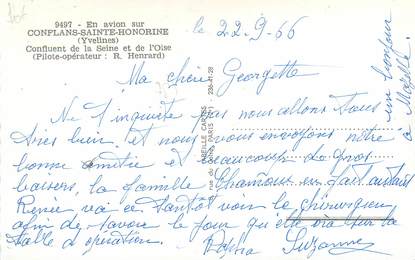 9497 - En avion sur
CONFLANS-SAINTE-HONORINE
(Yvelines)
Confluent de la Seine et de l'Oise
(Pilote-opérateur : R. Henrard)
le 22-9-66
Ma chérie Georgette
Ne t'inquiète pas nous allons tous
très bien et nous vous envoyons notre
bonne amitié et beaucoup de gros
baisers, la famille Chamoux en fait autant
Renée va ce tantôt voir le chirurgien
afin de savoir le jour qu'elle ira sur la
salle d'opération.
Suzanne
un bonjour
à
236-41-28